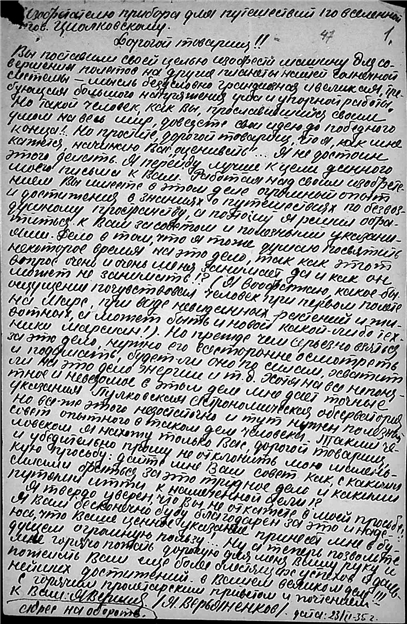 Изобретателю прибора для путешествий по вселенной
тов. Циолковскому.
47 1.
Дорогой товарищ!!
Вы поставили своей целью изобрести машину для со-
вершения полетов на другие планеты нашей солнечной
системы — мысль безусловно грандиозная и великая, тре-
бующая большого напряжения ума и упорной работы,
но такой человек, как Вы, прославившийся своим
умом на весь мир, доведет свои идею до победного
конца!. Но простите, дорогой товарищ, что я, как мне
кажется, начинаю Вас оценивать... Я не достоин
этого делать. Я перейду лучше к цели данного
моего письма к Вам. Работая над своим изобрете-
нием Вы имеете в этом деле огромный опыт
и достижения в знаниях о путешествиях по безвоз-
душному пространству, и поэтому я решил обра-
титься к Вам за советом и полезными указани-
ями. Дело в том, что я тоже думаю посвятить
некоторое время на это дело, так как этот
вопрос очень и очень меня занимает да и как он
может не занимать!? (Я воображаю, какое бы
ощущение почувствовал человек при первом полете
на Марс, при виде невиданных растений и жи-
вотных, а может быть и новой какой-либо тех-
ники марсиан!). Но прежде чем серьезно взяться
за это дело, нужно его всесторонне осмотреть
и подсчитать, будет ли оно по силам, хватит
ли на это дело энергии и т.д. Хотя на все непонят-
ное и неведомое с этим дел мне дает точные
указания Пулковская Астрономическая обсерватория,
но все же этого недостаточно и тут нужен полезный
совет опытного в таком деле человека. Таким че-
ловеком я нахожу только Вас, дорогой товарищ,
и убедительно прошу не отклонить мою малень-
кую просьбу: дайте мне Ваш совет как, с какими
силами браться за это трудное дело и какими
путями итти к намеченной цели!?
Я твердо уверен, что Вы не откажете в моей просьбе,
я Вам бесконечно буду благодарен за это и наде-
юсь, что Ваше ценное указание принесет мне в бу-
дущем огромную пользу!. Ну, а теперь позвольте
мне горячо пожать дорогую для меня Вашу руку и
пожелать Вам еще более блестящих успехов и даль-
нейших достижений в Вашем великом деле!!!
С горячим пролетарским приветом и почтением
к Вам: / Я. Вербяненков/
адрес на обороте. дата: 23/II-35 г.